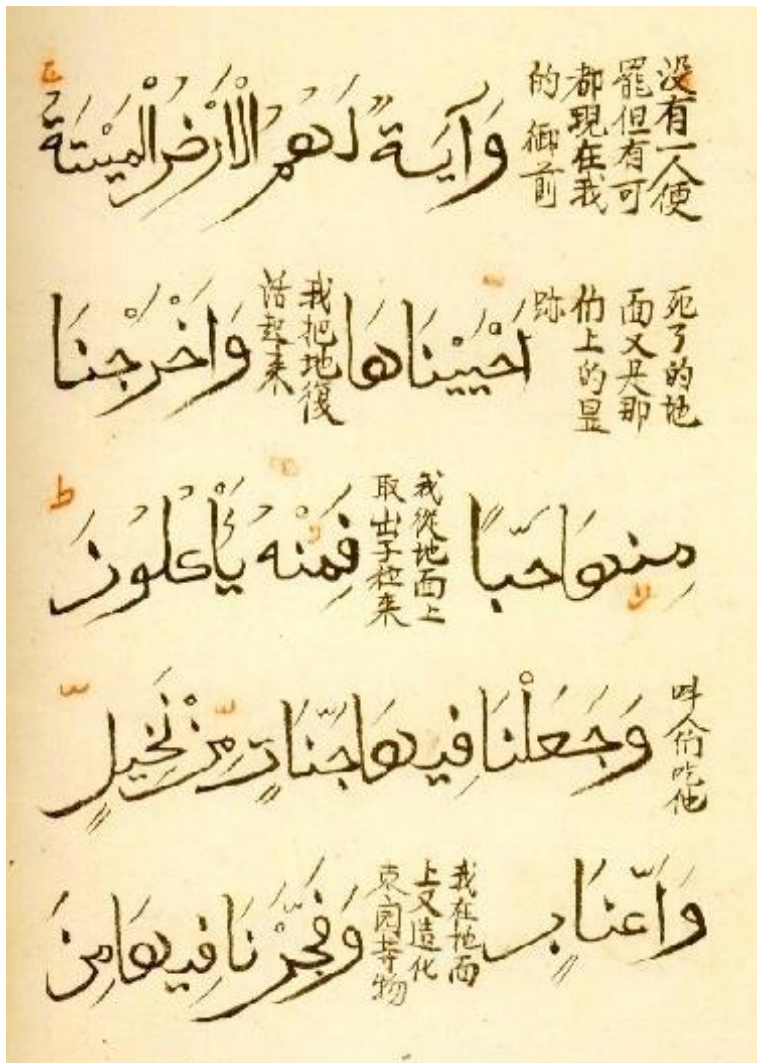 没有一人便
罷但有可
都現在我
的御前
وَآيَةٌ لَهُمُ الْأَرْضُ الْمَيْتَةُ
死了的地
面又是那
们上的显
跡
اَحْيَيْنَاهَا
我把地復
活起来
وَاَخْرَجْنَا
مِنْهَا حَبًّا
我從地面上
取出子粒来
فَمِنْهُ يَأْكُلُونَ
叫人们吃他
وَجَعَلْنَا فِيهَا جَنَّاتٍ مِنْ نَخِيلٍ
وَاَعْنَابٍ
我在地面
上又造化
园等物
وَفَجَّرْنَا فِيهَا مِنَ